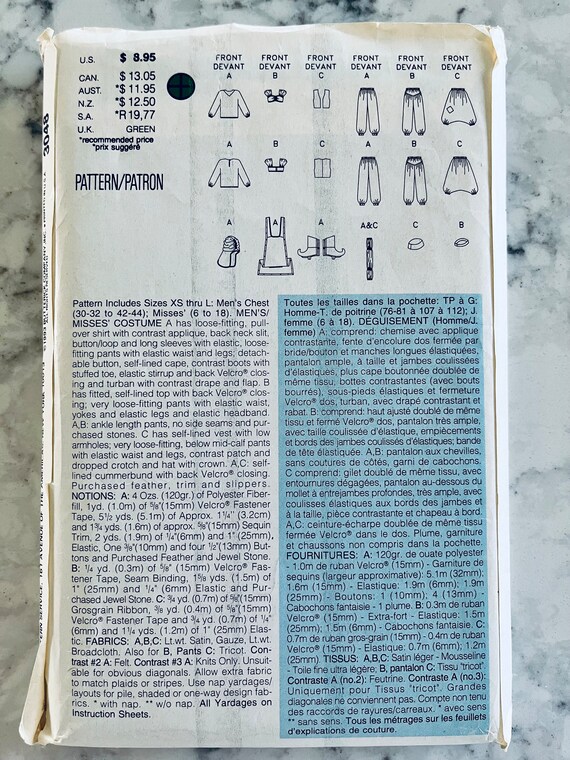 U.S. $ 8.95
CAN. $ 13.05
AUST. *$ 11.95
N.Z. *$ 12.50
S.A. *R 19,77
U.K. GREEN
*recommended price
*prix suggéré
PATTERN/PATRON
3048
FRONT FRONT FRONT FRONT FRONT FRONT
DEVANT DEVANT DEVANT DEVANT DEVANT DEVANT
A B C A B C
A B C A B C
A A A A&C C B
Pattern Includes Sizes XS thru L: Men's Chest
(30-32 to 42-44); Misses' (6 to 18). MEN'S/
MISSES' COSTUME A has loose-fitting, pull-
over shirt with contrast applique, back neck slit,
button/loop and long sleeves with elastic, loose-
fitting pants with elastic waist and legs; detach-
able button, self-lined cape, contrast boots with
stuffed toe, elastic stirrup and back Velcro® clos-
ing and turban with contrast drape and flap. B
has fitted, self-lined top with back Velcro® clos-
ing; very loose-fitting pants with elastic waist,
yokes and elastic legs and elastic headband.
A,B: ankle length pants, no side seams and pur-
chased stones. C has self-lined vest with low
armholes; very loose-fitting, below mid-calf pants
with elastic waist and legs, contrast patch and
dropped crotch and hat with crown. A,C: self-
lined cummerbund with back Velcro® closing.
Purchased feather, trim and slippers.
NOTIONS: A: 4 Ozs. (120gr.) of Polyester Fiber-
fill, 1yd. (1.0m) of ⅝"(15mm) Velcro® Fastener
Tape, 5½ yds. (5.1m) of Approx. 1¼" (3.2cm)
and 1¾ yds. (1.6m) of approx. ⅝"(15mm) Sequin
Trim, 2 yds. (1.9m) of ¼"(6mm) and 1" (25mm),
Elastic, One ⅜"(10mm) and four ½"(13mm) But-
tons and Purchased Feather and Jewel Stone.
B: ¼ yd. (0.3m) of ⅝" (15mm) Velcro® Fas-
tener Tape, Seam Binding, 1⅝ yds. (1.5m) of
1" (25mm) and ¼" (6mm) Elastic and Pur-
chased Jewel Stone. C: ¾ yd. (0.7m) of ⅝"(15mm)
Grosgrain Ribbon, ⅜ yd. (0.4m) of ⅝"(15mm)
Velcro® Fastener Tape and ¾ yd. (0.7m) of ¼"
(6mm) and 1¼ yds. (1.2m) of 1" (25mm) Elas-
tic. FABRICS: A,B,C: Lt.wt. Satin, Gauze, Lt.wt.
Broadcloth. Also for B, Pants C: Tricot. Con-
trast #2 A: Felt. Contrast #3 A: Knits Only. Unsuit-
able for obvious diagonals. Allow extra fabric
to match plaids or stripes. Use nap yardages/
layouts for pile, shaded or one-way design fab-
rics. * with nap. ** w/o nap. All Yardages on
Instruction Sheets.
Toutes les tailles dans la pochette: TP à G:
Homme-T. de poitrine (76-81 à 107 à 112); J.
femme (6 à 18). DÉGUISEMENT (Homme/J.
femme) A: comprend: chemise avec applique
contrastante, fente d'encolure dos fermée par
bride/bouton et manches longues élastiquées,
pantalon ample, à taille et jambes coulissées
d'élastiques, plus cape boutonnée doublée de
même tissu, bottes contrastantes (avec bouts
bourrés), sous-pieds élastiques et fermeture
Velcro® dos; turban, avec drapé contrastant et
rabat. B: comprend: haut ajusté doublé de même
tissu et fermé Velcro® dos, pantalon très ample,
avec taille coulissée d'élastique, empiècements
et bords des jambes coulissés d'élastiques; bande
de tête élastiquée. A,B: pantalon aux chevilles,
sans coutures de côtés, garni de cabochons.
C comprend: gilet doublé de même tissu, avec
entournures dégagées, pantalon au-dessous du
mollet à entrejambes profondes, très ample, avec
coulisses élastiques aux bords des jambes et
à la taille, pièce contrastante et chapeau à bord.
A,C: ceinture-écharpe doublée de même tissu
fermée Velcro® dans le dos. Plume, garniture
et chaussons non compris dans la pochette.
FOURNITURES: A: 120gr. de ouate polyester
- 1.0m de ruban Velcro® (15mm) - Garniture de
sequins (largeur approximative): 5.1m (32mm);
1.6m (15mm) - Elastique: 1.9m (6mm); 1.9m
(25mm) - Boutons: 1 (10mm); 4 (13mm) -
Cabochons fantaisie - 1 plume. B: 0.3m de ruban
Velcro® (15mm) - Extra-fort - Elastique: 1.5m
(25mm); 1.5m (6mm) - Cabochons fantaisie. C:
0.7m de ruban gros-grain (15mm) - 0.4m de ruban
Velcro® (15mm) - Elastique: 0.7m (6mm); 1.2m
(25mm). TISSUS: A,B,C: Satin léger - Mousseline
- Toile fine ultra légère; B, pantalon C: Tissu "tricot".
Contraste A (no.2): Feutrine. Contraste A (no.3):
Uniquement pour Tissus "tricot". Grandes
diagonales ne conviennent pas. Compte non tenu
des raccords de rayures/carreaux. * avec sens
** sans sens. Tous les métrages sur les feuillets
d'explications de couture.